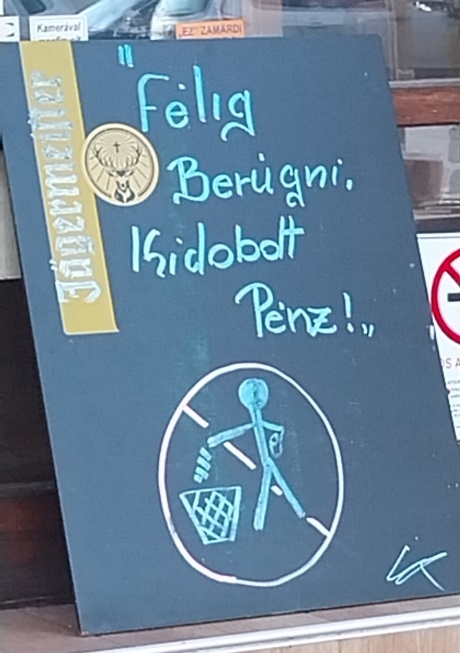 Kamerával
"EZ" ZAMÁRDI
Jägermeister
"Félig
Berúgni.
Kidobott
Pénz!„